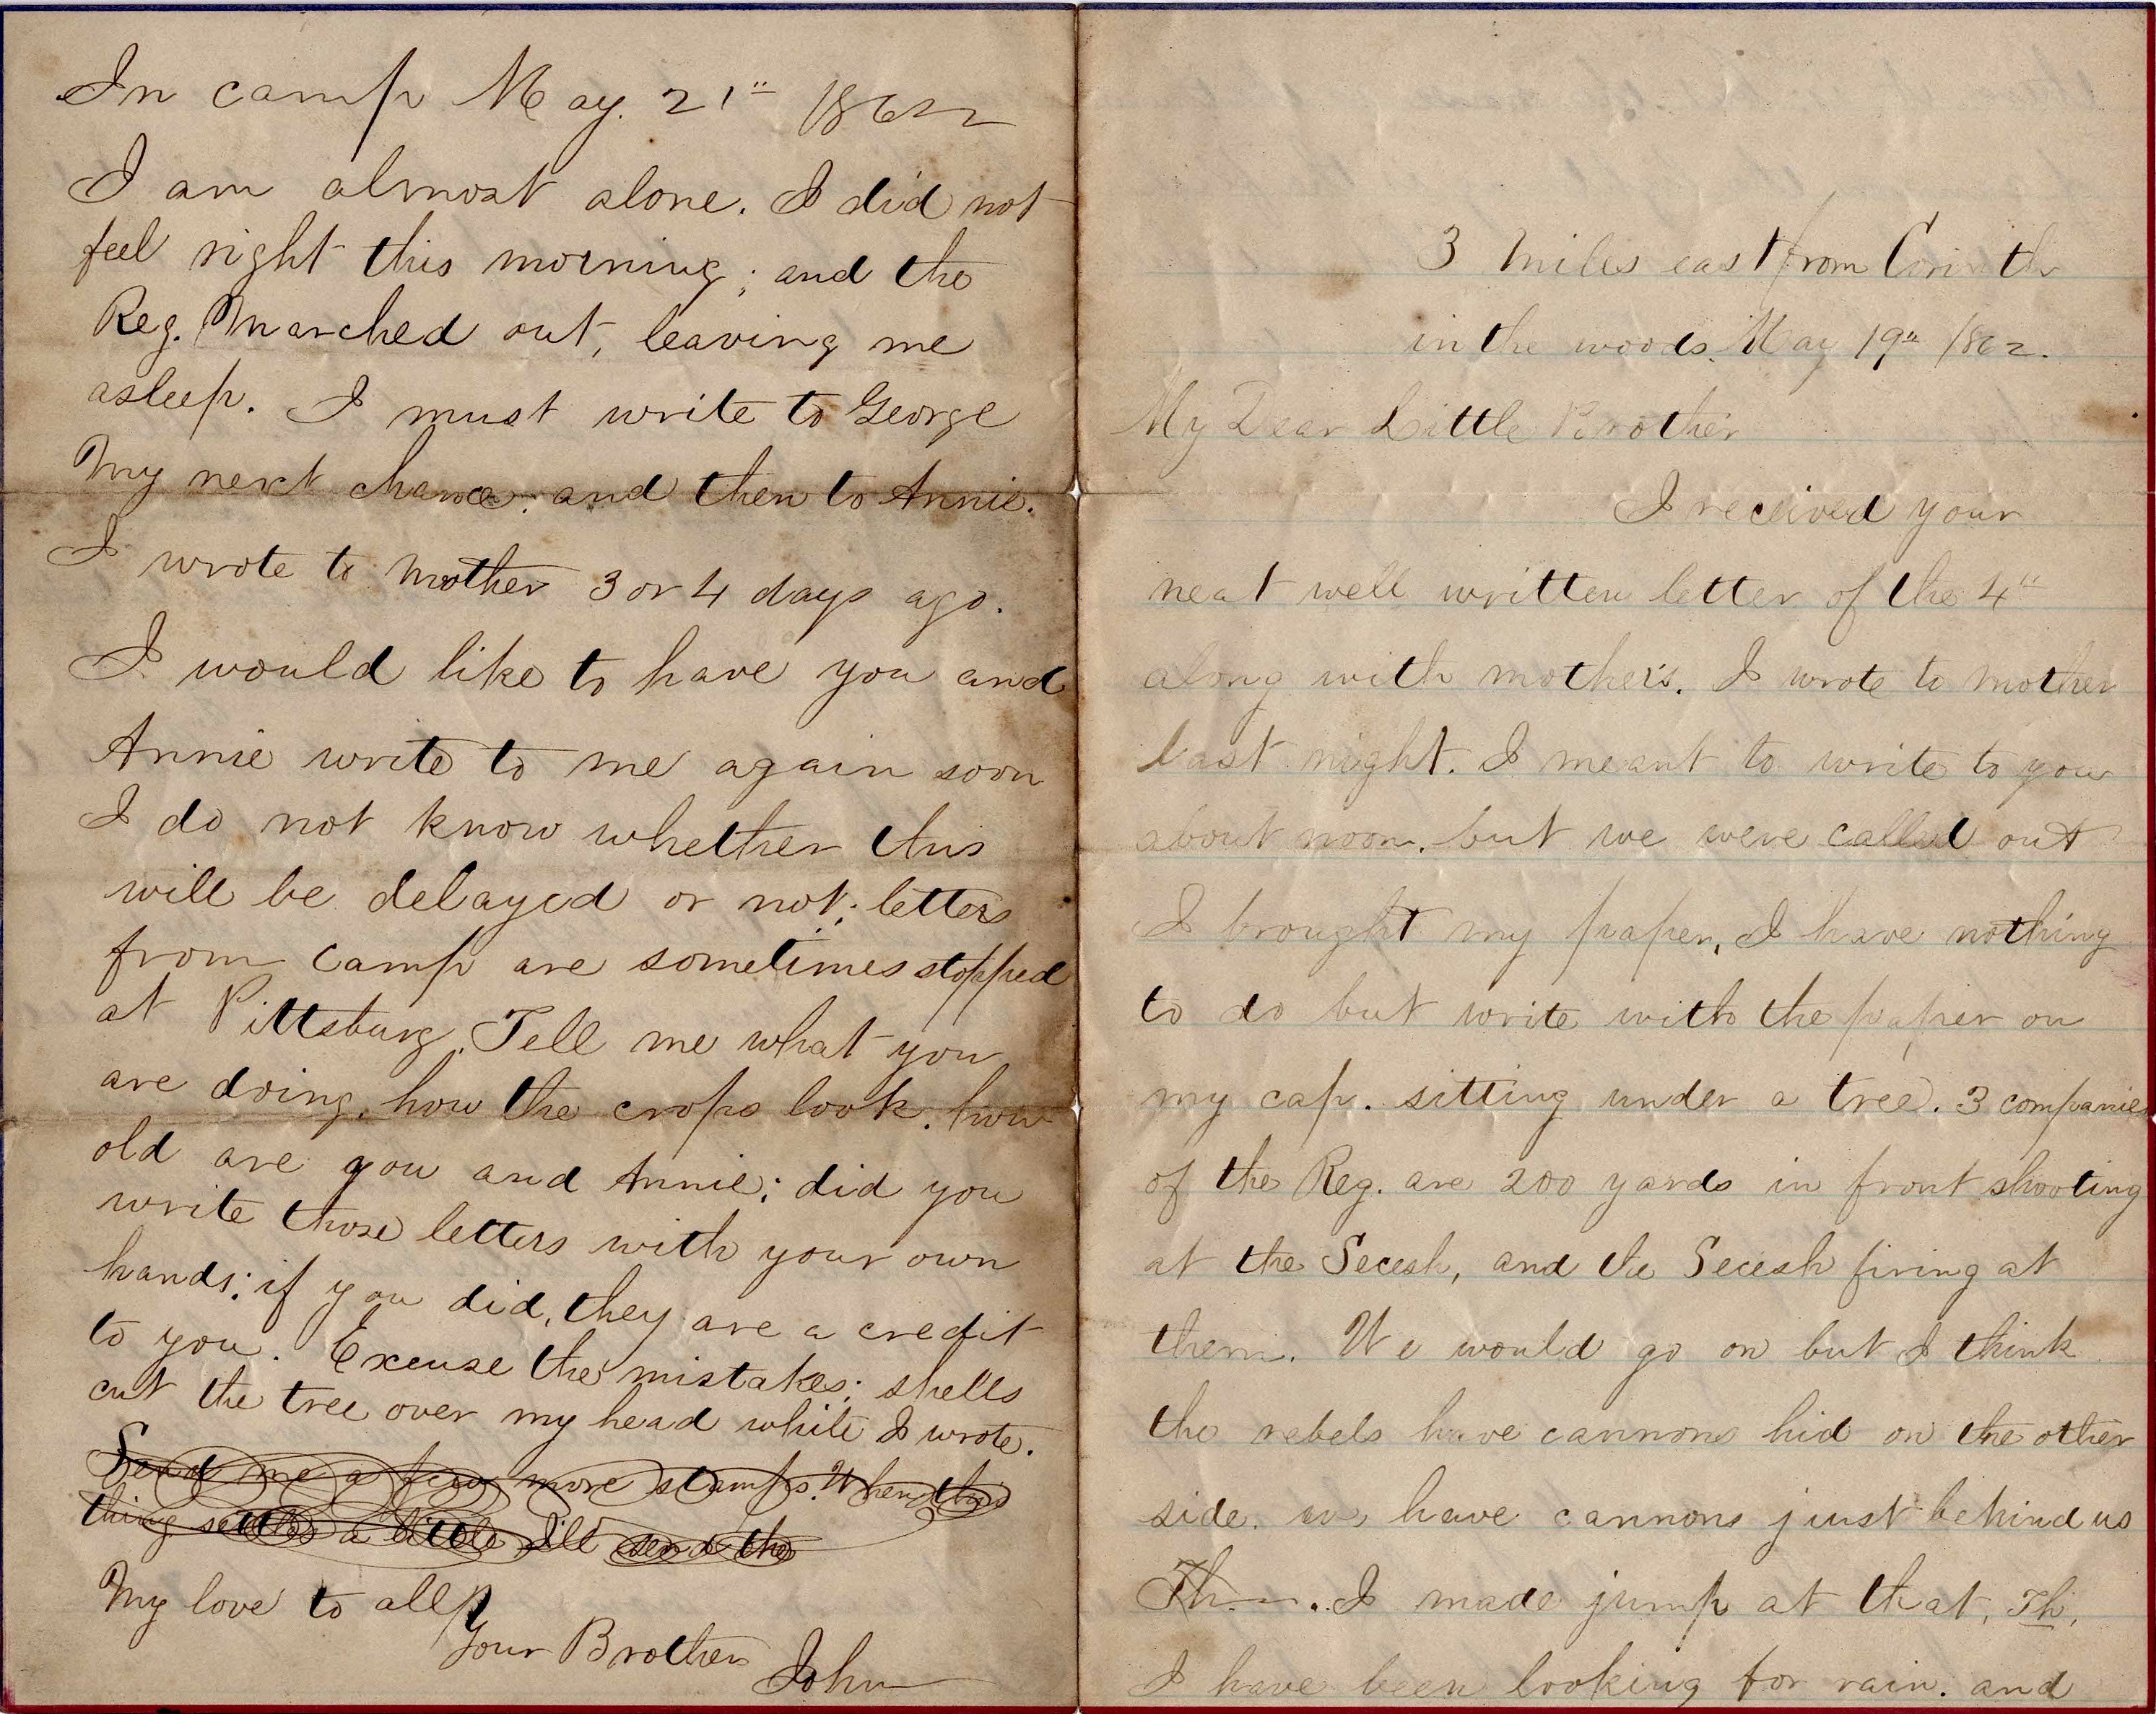 In camp May. 21" 1862
I am almost alone. I did not
feel right this morning; and the
Reg. Marched out, leaving me
asleep. I must write to George
My next chance. and then to Annie.
I wrote to Mother 3 or 4 days ago.
I would like to have you and
Annie write to me again soon
I do not know whether this
will be delayed or not; letters
from camp are sometimes stopped
at Pittsburg. Tell me what you
are doing. how the crops look. how
old are you and Annie; did you
write those letters with your own
hands; if you did, they are a credit
to you. Excuse the mistakes; shells
cut the tree over my head while I wrote.
Send me a few more stamps. When this
thing settles a little I'll send the
My love to all
Your Brother
John
3 Miles east from Corinth
in the woods. May 19" 1862.
My Dear Little Brother
I received your
neat well written letter of the 4"
along with mother's. I wrote to mother
last night. I meant to write to you
about noon. but we were called out
I brought my paper, I have nothing
to do but write with the paper on
my cap. sitting under a tree. 3 companies
of the Reg. are 200 yards in front shooting
at the Secesh, and the Secesh firing at
them. We would go on but I think
the rebels have cannons hid on the other
side. we have cannons just behind us
Th . I made jump at that, Th.
I have been looking for rain. and